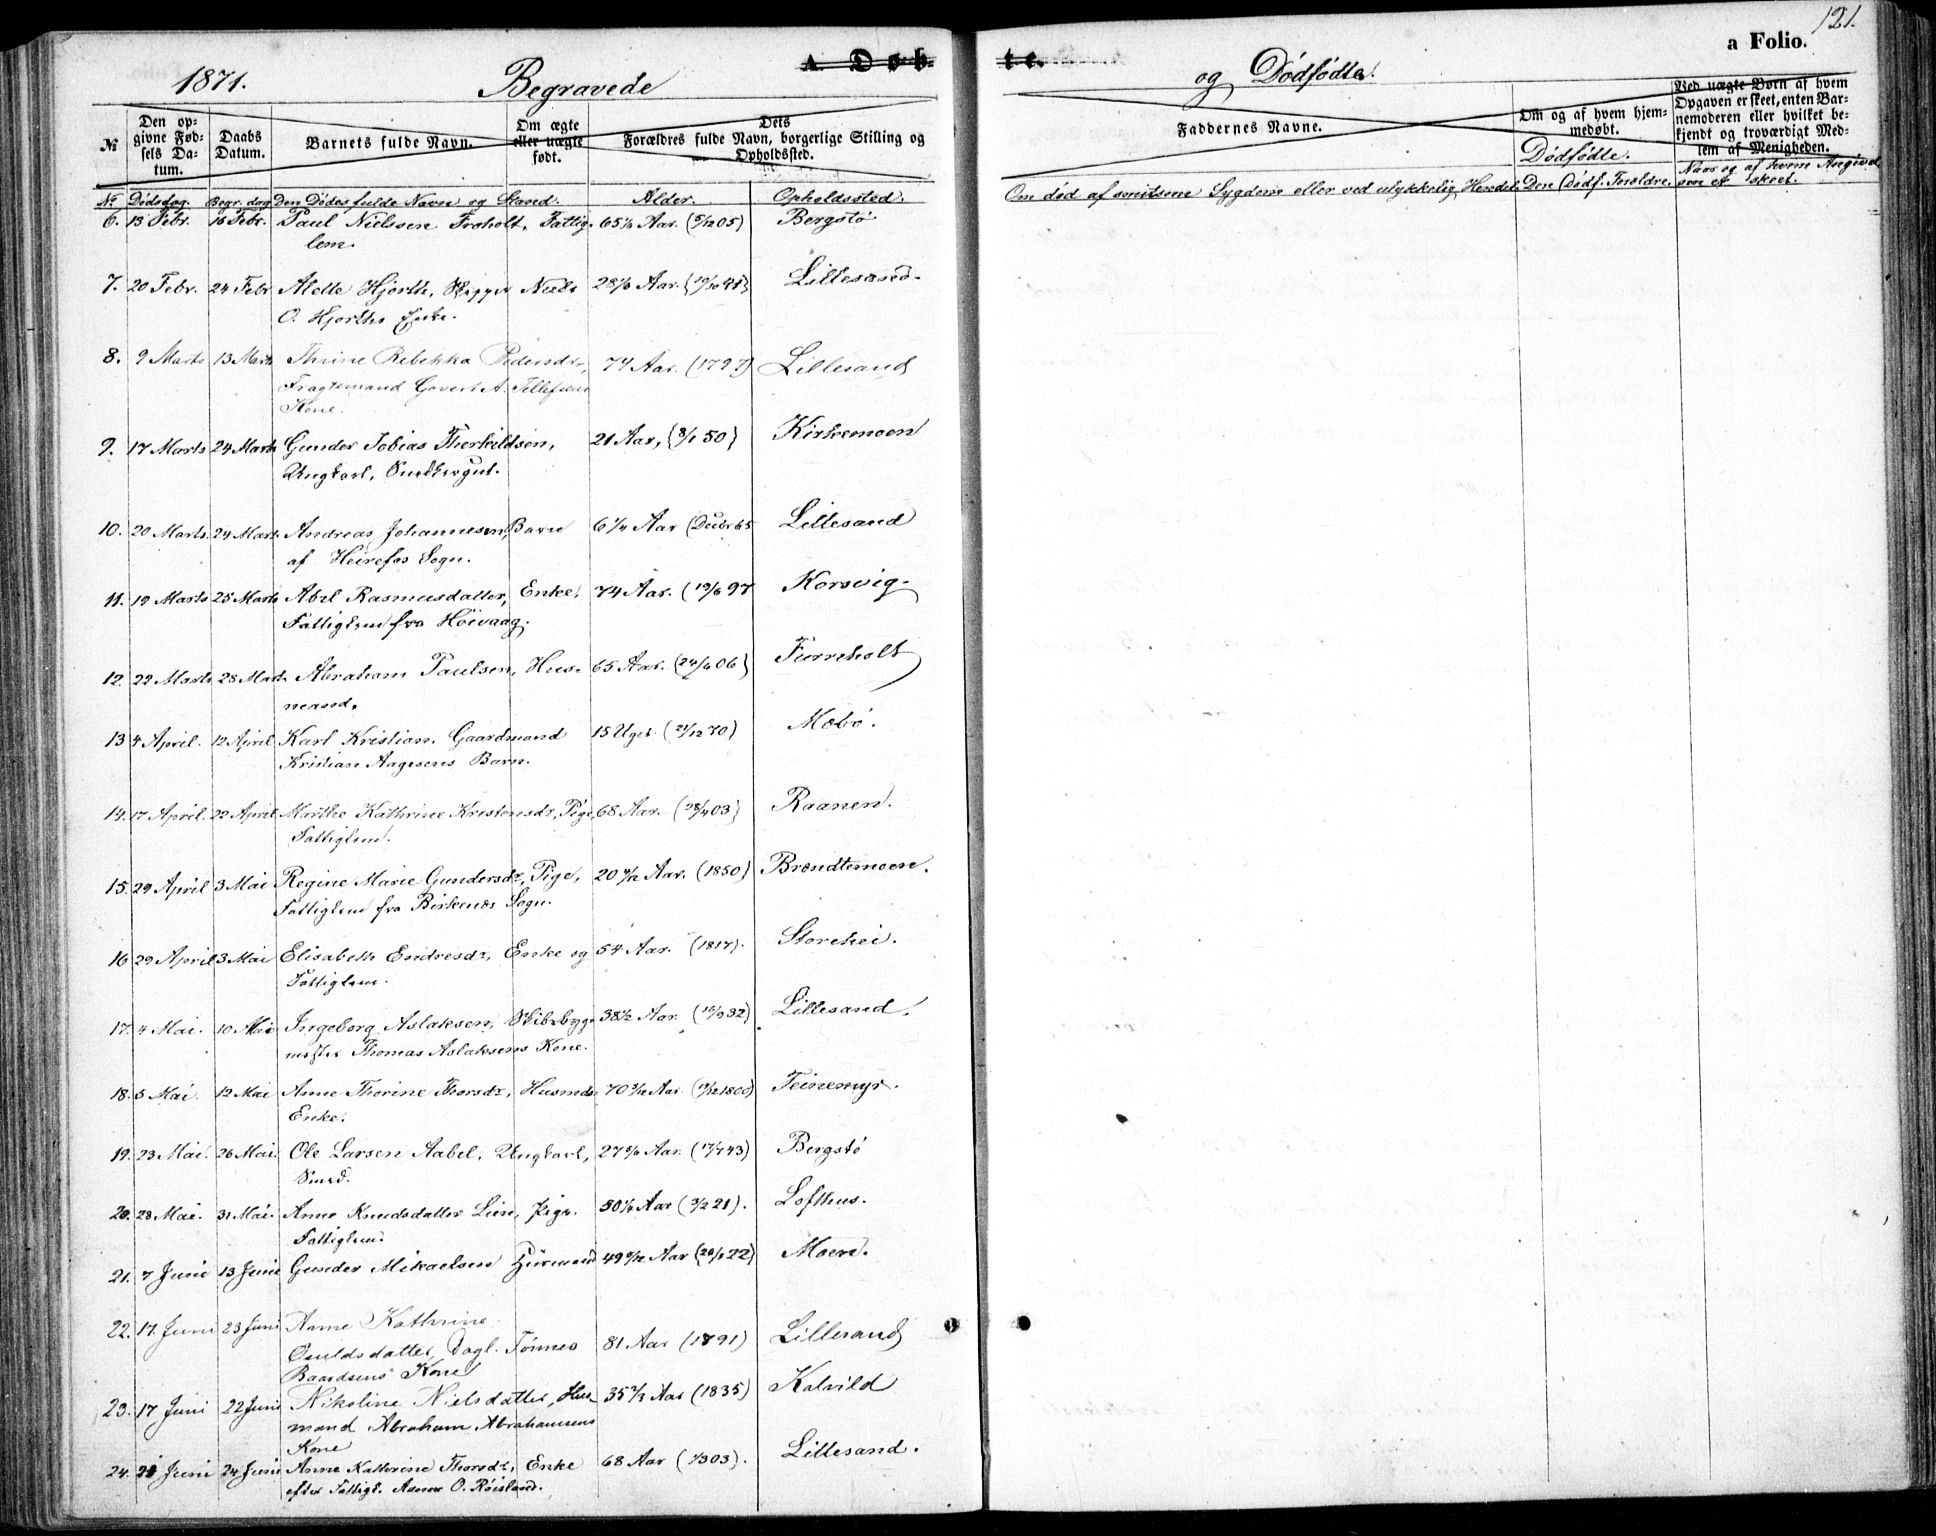 1871. Begravede
A. Døb-
te.
og Dødfødte.
121.
a Folio.
№
Den op-
givne Fød-
sels Da-
tum.
Daabs
Datum.
Barnets fulde Navn.
Om ægte
eller uægte
født.
Dets
Forældres fulde Navn, borgerlige Stilling og
Opholdssted.
Faddernes Navne.
Om og af hvem hjem-
medøbt.
Dødfødte.
Ved uægte Børn af hvem
Opgaven er skeet, enten Bar-
nemoderen eller hvilket be-
kjendt og troværdigt Med-
lem af Menigheden.
№ Dødsdag. Begr. dag Den Dødes fulde Navn og Stand. Alder. Opholdssted.
Om død af smitsom Sygdom eller ved ulykkelig Hendelse. Den Dødf. Forældre.
Naar og af hvem Angivel
sen er skeet.
6. 13 Febr. 16 Febr. Paul Nielssen Froholt, Fattig- 65 1/6 Aar. (5/12 05) Bergstø
lem.
7. 20 Febr. 24 Febr Alette Hjorth, Skipper Niels 28 1/6 Aar. Lillesand.
O. Hjorths Enke.
8. 9 Marts 13 Marts Thrine Rebekka Pedersdr, 74 Aar. (1797) Lillesand
Fragtemand Govert A. Tellefsens
Kone.
9. 17 Marts 24 Marts Gunder Tobias Therkildsen, 21 Aar, (8/1 50) Kirkemoen
Ungkarl, Snedkergut.
10. 20 Marts 24 Marts Andreas Johannesen, Barn 6 1/4 Aar (Decbr 65 Lillesand
af Heirefos Sogn.
11. 19 Marts 25 Marts Abel Rasmusdatter, Enke, 74 Aar. (19/6 97 Korsvig.
Fattiglem fra Høivaag.
12. 22 Marts 28 Marts Abraham Paulsen, Hus- 65 Aar. (24/6 06) Furreholt
mand.
13 4 April. 12 April Karl Kristian. Gaardmand 15 Uger (21/12 70) Mæbø.
Kristian Aagesens Barn.
14. 17 April. 22 April Marthe Kathrine Kristensdr, Pige, 68 Aar. (28/4 03) Raanen.
Fattiglem.
15. 29 April 3 Mai Regine Marie Gundersdr, Pige, 20 Aar. (1850) Brændtemoen.
Fattiglem fra Birkenæs Sogn.
16 29 April 3 Mai Elisabeth Endresdr, Enke og 54 Aar. (1817). Storehei.
Fattiglem.
17. 4 Mai. 10 Mai Ingeborg Aslaksen, Skibsbygg- 38 1/2 Aar. (32) Lillesand.
mester Thomas Aslaksens Kone.
18. 5 Mai. 12 Mai Anne Thorine Thorsdr, Husmds- 70 Aar. (1800) Teinemyr.
Enke.
19. 23 Mai. 26 Mai. Ole Larsen Aabel, Ungkarl, 27 5/6 Aar. (17/7 43) Bergstø
Smed.
20. 28 Mai. 31 Mai. Anne Knudsdatter Lien, Pige. 50 Aar (3/2 21). Lofthus.
Fattiglem.
21. 7 Juni 13 Juni Gunder Mikaelsen 49 Aar (22) Moen.
22. 17 Juni 23 Juni Anne Kathrine
Osuldsdatter, Dagl. Tønnes 81 Aar (1791) Lillesand
Baardsens Kone
23. 17 Juni 22 Juni Nikoline Nielsdatter, Hus- 35 Aar (1835) Kalvild
mand Abraham Abrahamsens
Kone
24. 21 Juni 24 Juni Anne Kathrine Thorsdr, Enke 68 Aar (1803). Lillesand.
efter Fattigl. Asmer O. Røisland.